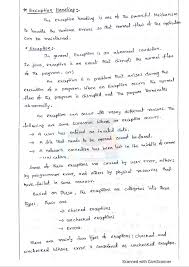 * Exception Handling:
The Exception Handling is one of the powerful Mechanism
to handle the runtime errors so that normal flow of the application
can be maintained.
* Exception:
In general, Exception is an abnormal condition.
In java, exception is an event that disrupt the normal flow
of the program. (or)
An Exception is a problem that arises during the
execution of a program. When an exception occurs the normal
flow of the program is disrupted and the program terminates
abnormally.
An exception can occur for many different reasons. The
following are some scenarios where an exception occurs.
→ A user has entered an invalid data.
→ A file that needs to be opened cannot be found.
→ A network connection has been lost in the middle of communications
Some of these exceptions are caused by user error, others
by programmer error, and others by physical resources that
have failed in some manner.
Based on these, the exceptions are categorised into three
types. They are
→ checked exceptions
→ unchecked exceptions
→ Errors
There are mainly two types of exceptions: checked and
unchecked where error is considered as unchecked exception.
Scanned with CamScanner